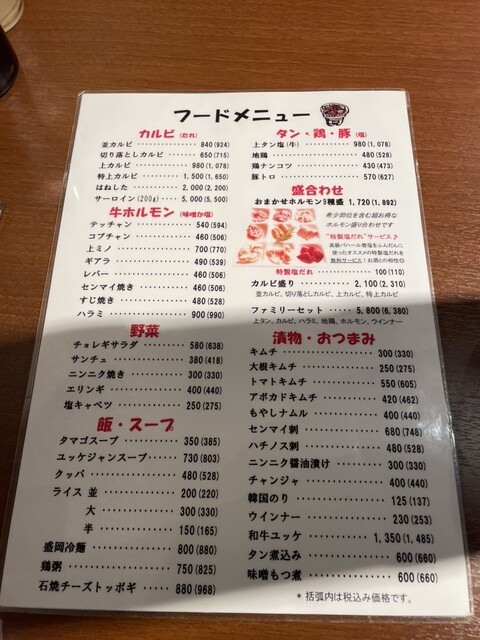 フードメニュー
カルビ (たれ)
並カルビ ・・・・・・・・ 840 (924)
切り落としカルビ ・・・・ 650 (715)
上カルビ ・・・・・・・・ 980 (1,078)
特上カルビ ・・・・・・ 1,500 (1,650)
はねした ・・・・・・・ 2,000 (2,200)
サーロイン (200g) ・・・ 5,000 (5,500)
牛ホルモン (味噌か塩)
テッチャン ・・・・・・・ 540 (594)
コプチャン ・・・・・・・ 460 (506)
上ミノ ・・・・・・・・・ 700 (770)
ギアラ ・・・・・・・・・ 490 (539)
レバー ・・・・・・・・・ 460 (506)
センマイ焼き ・・・・・・ 460 (506)
すじ焼き ・・・・・・・・ 480 (528)
ハラミ ・・・・・・・・・ 900 (990)
野菜
チョレギサラダ ・・・・・ 580 (638)
サンチュ ・・・・・・・・ 380 (418)
ニンニク焼き ・・・・・・ 300 (330)
エリンギ ・・・・・・・・ 400 (440)
塩キャベツ ・・・・・・・ 250 (275)
飯・スープ
タマゴスープ ・・・・・・ 350 (385)
ユッケジャンスープ ・・・ 730 (803)
クッパ ・・・・・・・・・ 480 (528)
ライス 並 ・・・・・・・ 200 (220)
大 ・・・・・・・ 300 (330)
半 ・・・・・・・ 150 (165)
盛岡冷麺 ・・・・・・・・ 800 (880)
鶏粥 ・・・・・・・・・・ 750 (825)
石焼チーズトッポギ ・・・ 880 (968)
タン・鶏・豚 (塩)
上タン塩 (牛) ・・・・・・ 980 (1,078)
地鶏 ・・・・・・・・・・ 480 (528)
鶏ナンコツ ・・・・・・・ 430 (473)
豚トロ ・・・・・・・・・ 570 (627)
盛合わせ
おまかせホルモン9種盛 1,720 (1,892)
希少部位を含む超お得な
ホルモン盛り合わせです
"特製塩だれ"サービス♪
高級バハール岩塩をふんだんに
使ったオススメの特製塩だれを
無料サービス！お酒との相性◎
特製塩だれ ・・・・・・・ 100 (110)
カルビ盛り ・・・・・・ 2,100 (2,310)
並カルビ、切り落としカルビ、上カルビ、特上カルビ
ファミリーセット ・・・・ 5,800 (6,380)
上タン、カルビ、ハラミ、地鶏、ホルモン、ウインナー
漬物・おつまみ
キムチ ・・・・・・・・・ 300 (330)
大根キムチ ・・・・・・・ 250 (275)
トマトキムチ ・・・・・・ 550 (605)
アボカドキムチ ・・・・・ 420 (462)
もやしナムル ・・・・・・ 400 (440)
センマイ刺 ・・・・・・・ 680 (748)
ハチノス刺 ・・・・・・・ 480 (528)
ニンニク醤油漬け ・・・・ 300 (330)
チャンジャ ・・・・・・・ 400 (440)
韓国のり ・・・・・・・・ 125 (137)
ウインナー ・・・・・・・ 230 (253)
和牛ユッケ ・・・・・・ 1,350 (1,485)
タン煮込み ・・・・・・・ 600 (660)
味噌もつ煮 ・・・・・・・ 600 (660)
＊括弧内は税込み価格です。